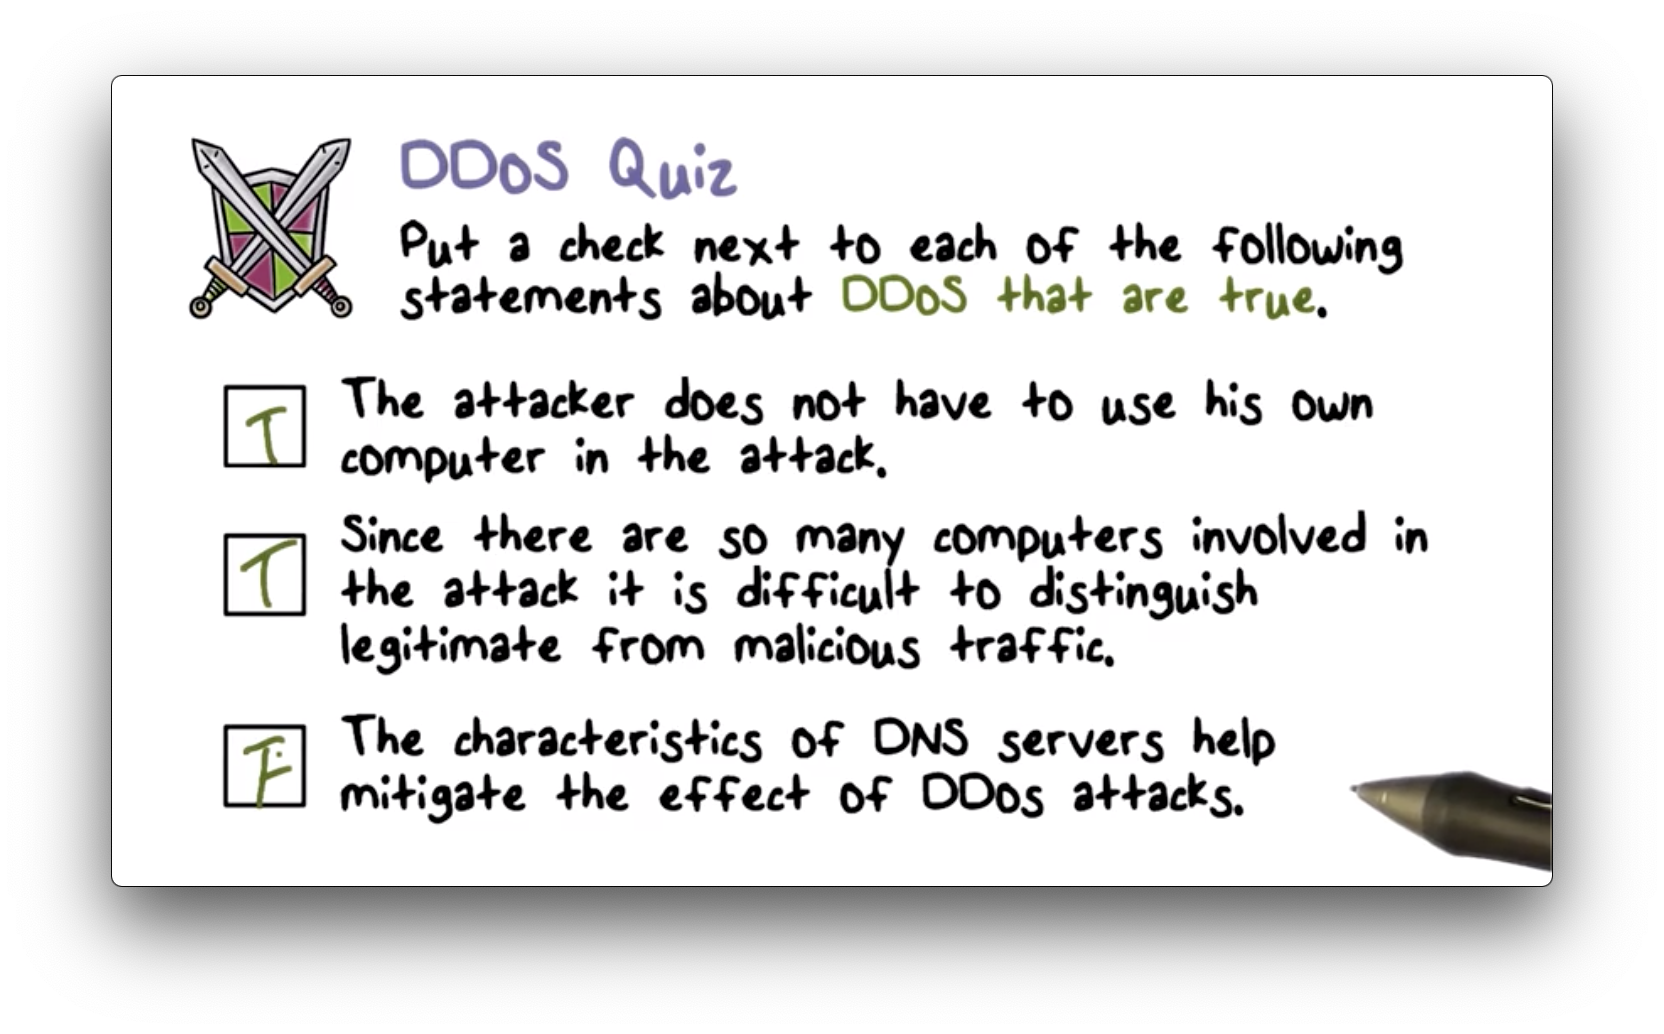 DDoS Quiz
Put a check next to each of the following
statements about DDoS that are true.
T
The attacker does not have to use his own
computer in the attack.
T
Since there are so many computers involved in
the attack it is difficult to distinguish
legitimate from malicious traffic.
F
The characteristics of DNS servers help
mitigate the effect of DDos attacks.